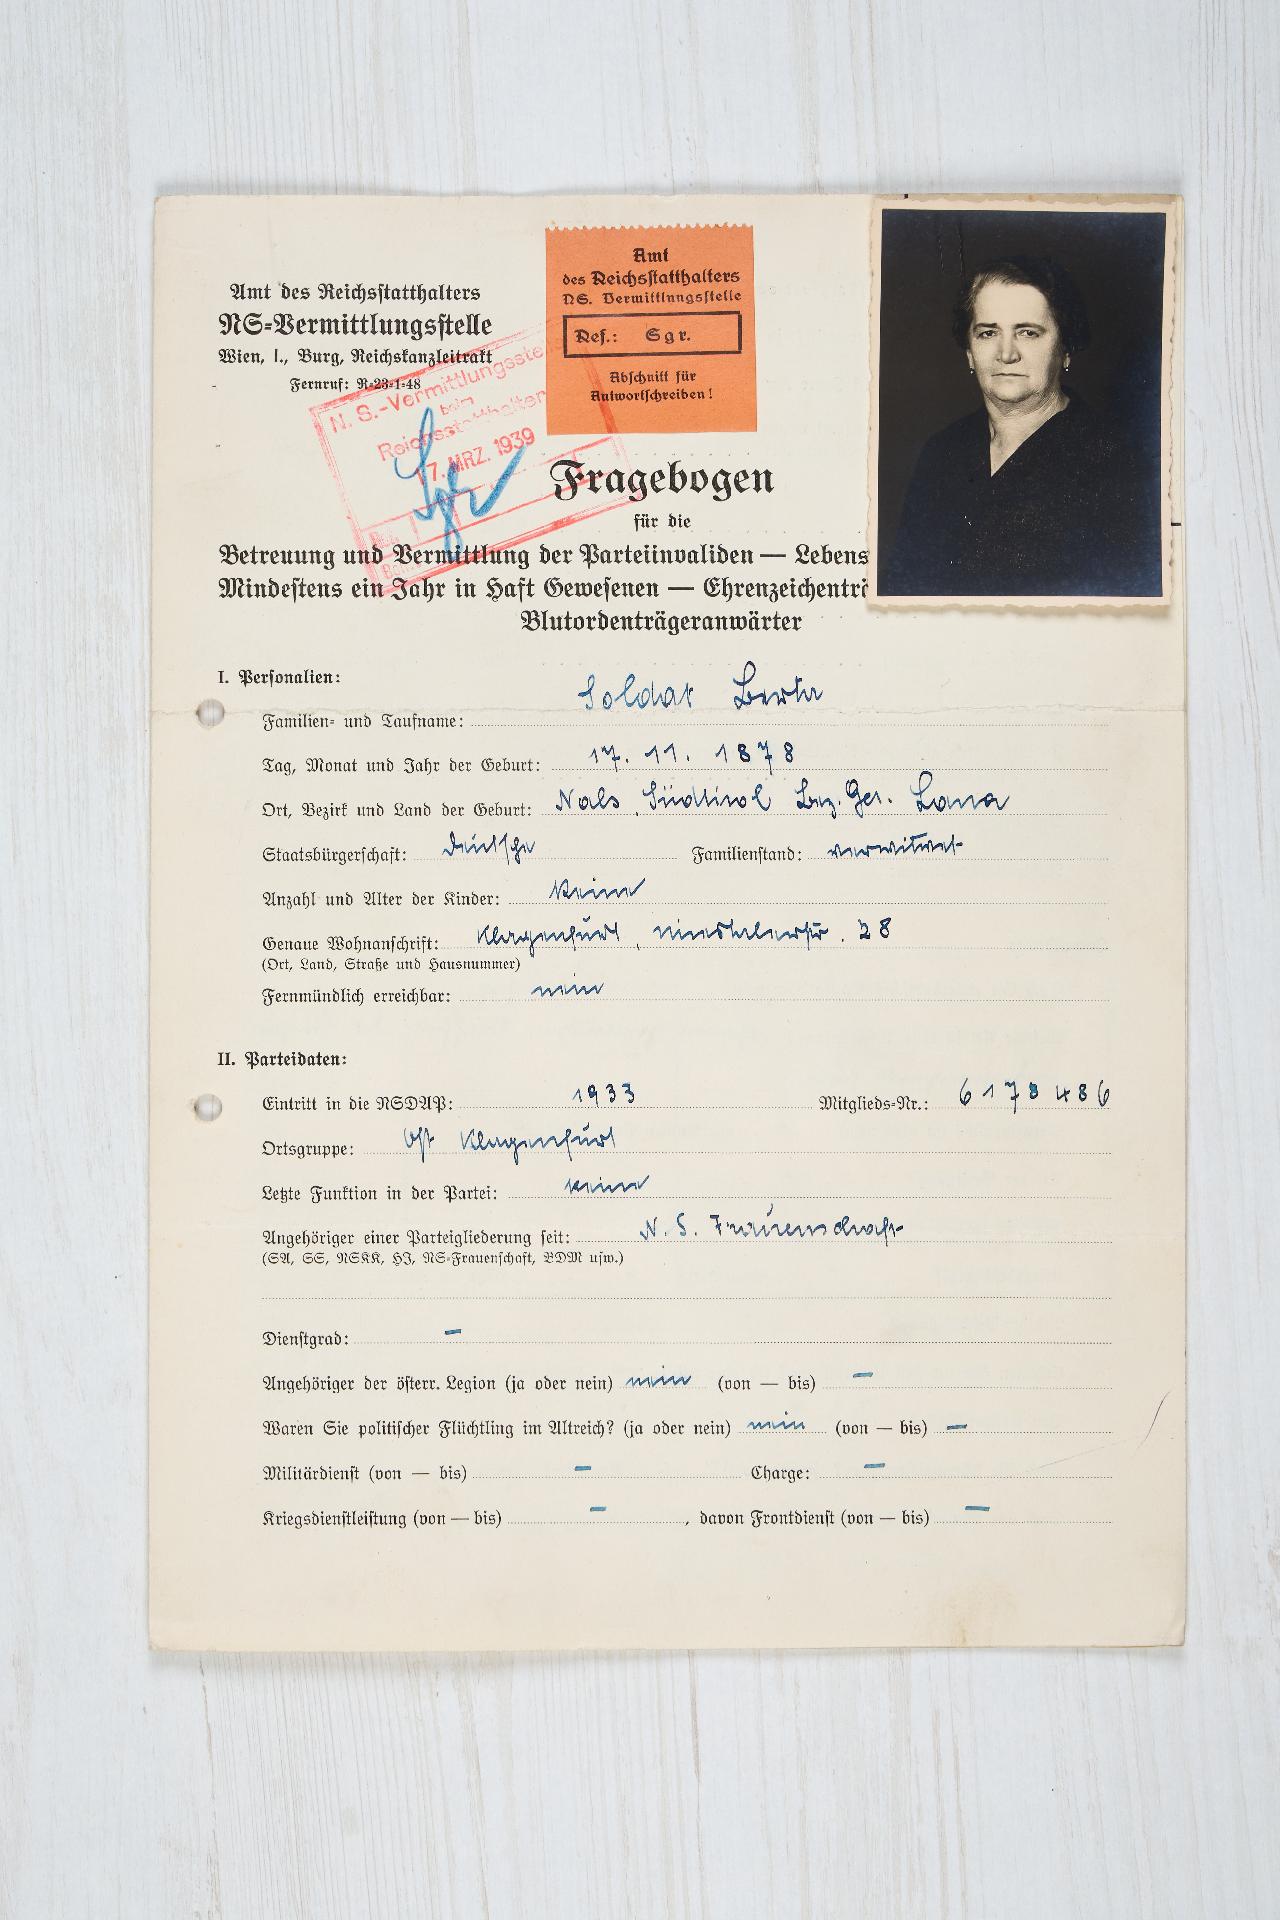 Amt des Reichsstatthalters
NS-Vermittlungsstelle
Wien, I., Burg, Reichskanzleitrakt
Fernruf: R-23-1-48
Amt
des Reichsstatthalters
NS. Vermittlungsstelle
Ref.: Sgr.
Abschnitt für
Antwortschreiben!
N. S.-Vermittlungsstelle
beim
Reichsstatthalter
17. MRZ. 1939
Sgr
Fragebogen
für die
Betreuung und Vermittlung der Parteiinvaliden — Lebens
Mindestens ein Jahr in Haft Gewesenen — Ehrenzeichenträ
Blutordenträgeranwärter
I. Personalien:
Familien- und Taufname: Soldat Berta
Tag, Monat und Jahr der Geburt: 17. 11. 1878
Ort, Bezirk und Land der Geburt: Nals, Südtirol Bez. Ger. Lana
Staatsbürgerschaft: deutsche Familienstand: verwitwet
Anzahl und Alter der Kinder: keine
Genaue Wohnanschrift: Klagenfurt, Miestalerstr. 28
(Ort, Land, Straße und Hausnummer)
Fernmündlich erreichbar: nein
II. Parteidaten:
Eintritt in die NSDAP: 1933 Mitglieds-Nr.: 6178486
Ortsgruppe: Ost Klagenfurt
Letzte Funktion in der Partei: keine
Angehöriger einer Parteigliederung seit: N. S. Frauenschaft
(SA, SS, NSKK, HJ, NS-Frauenschaft, BDM usw.)
Dienstgrad: —
Angehöriger der österr. Legion (ja oder nein) nein (von — bis) —
Waren Sie politischer Flüchtling im Altreich? (ja oder nein) nein (von — bis) —
Militärdienst (von — bis) — Charge: —
Kriegsdienstleistung (von — bis) — , davon Frontdienst (von — bis) —